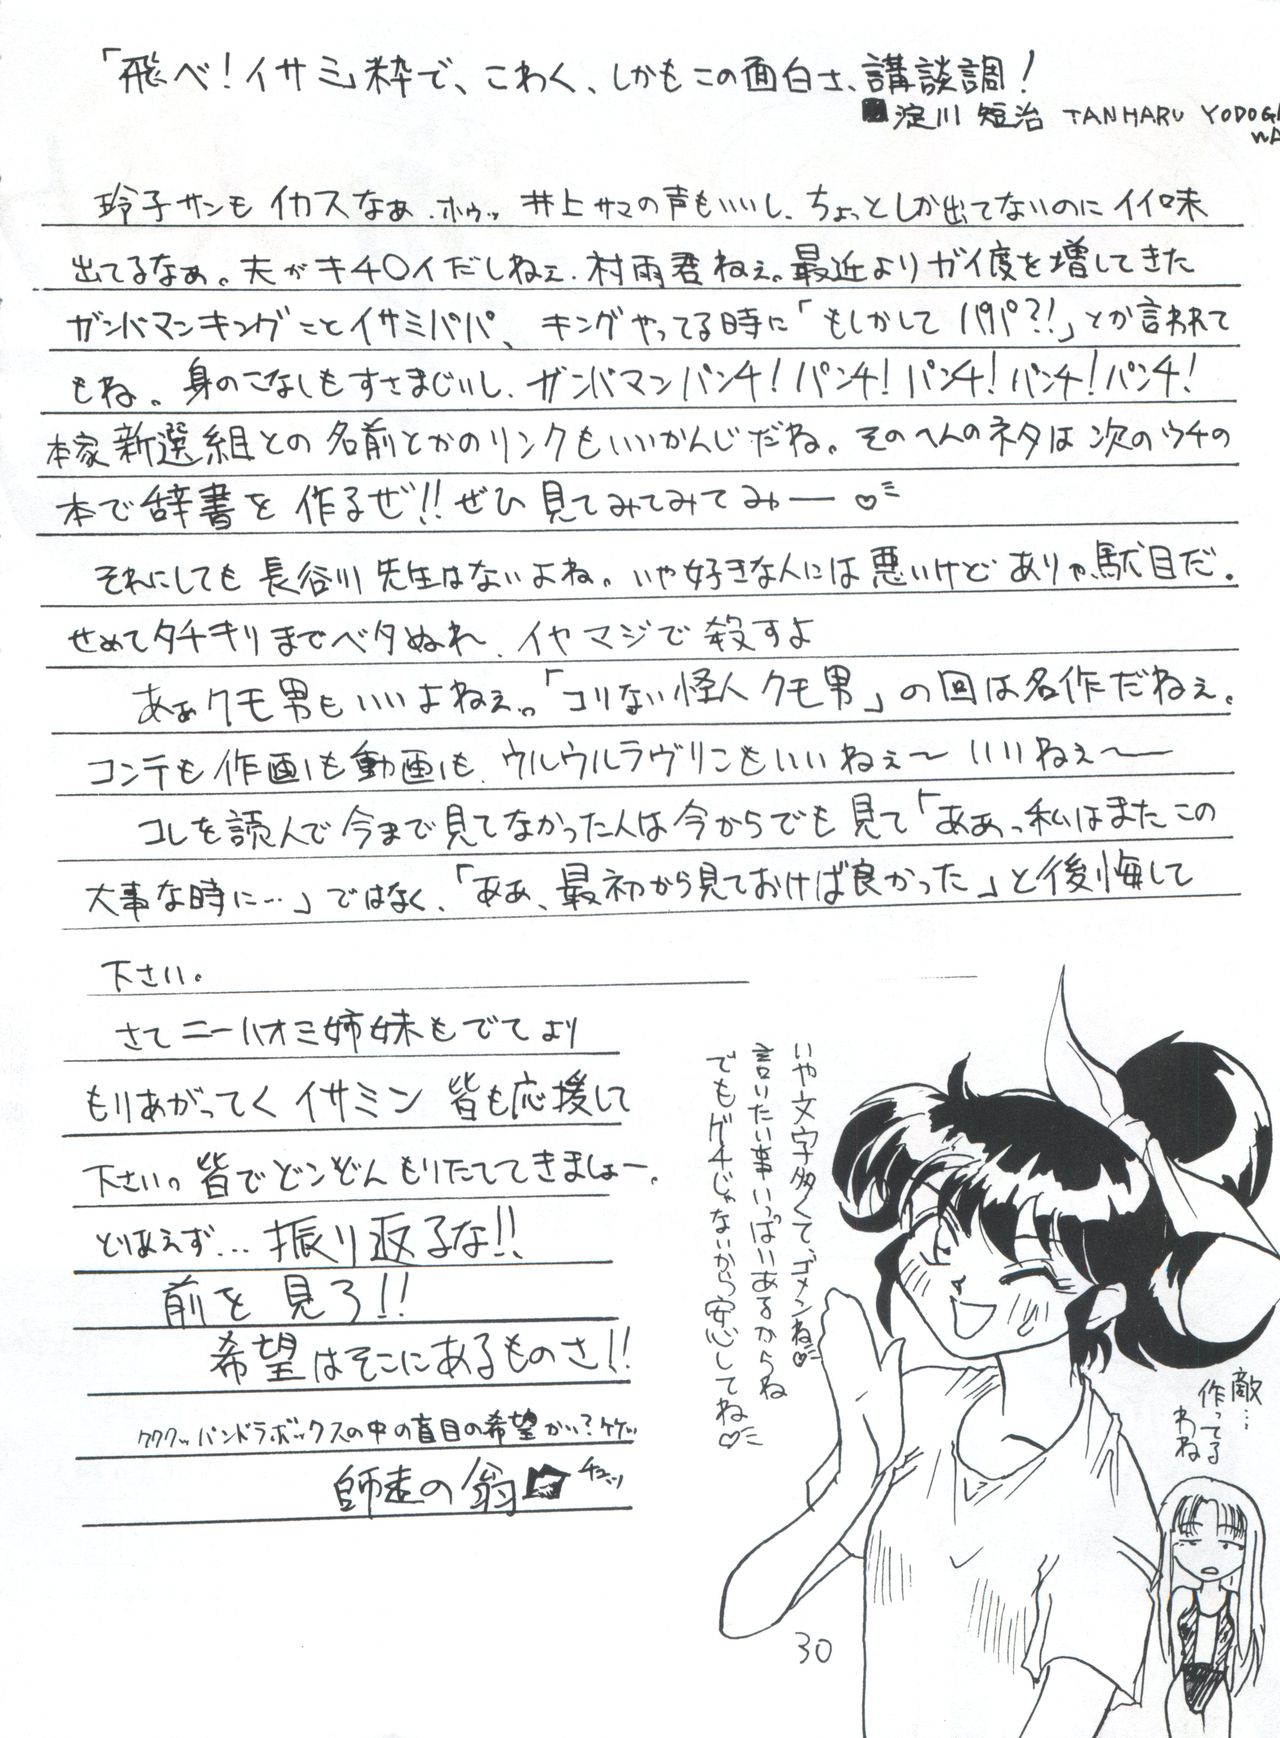 「飛べ！イサミ」粋で、こわく、しかもこの面白さ、講談調！
淀川 短治 TANHARU YODOGAWA
玲子サンもイカスなぁ。ホゥッ 井上サマの声もいいし、ちょっとしか出てないのにイイ味
出てるなぁ。夫がキチ○イだしねぇ。村雨君ねぇ。最近よりガイ度を増してきた
ガンバマンキングことイサミパパ、キングやってる時に「もしかしてパパ？！」とか言われて
もね。身のこなしもすさまじいし、ガンバマンパンチ！パンチ！パンチ！パンチ！パンチ！
本家新選組との名前とかのリンクもいいかんじだね。そのへんのネタは次のウチの
本で辞書を作るぜ！！ぜひ見てみてみてみゅー♡
それにしても長谷川先生はないよね。いや好きな人には悪いけどありゃ駄目だ。
せめてタチキリまでベタぬれ、イヤマジで殺すよ
あぁクモ男もいいよねぇ。「コリない怪人クモ男」の回は名作だねぇ。
コンテも作画も動画も、ウルウルラヴリこもいいねぇ〜いいねぇ〜
コレを読んで今まで見てなかった人は今からでも見て「ああっ私はまたこの
大事な時に…」ではなく、「ああ、最初から見ておけば良かった」と後悔して
下さい。
さてニーハオミ姉妹もでてより
もりあがってくイサミン 皆も応援して
下さい。皆でどンどんもりたててきましょー。
とりあえず…振り返るな！！
前を見ろ！！
希望はそこにあるものさ！！
ククククッパンドラボックスの中の盲目の希望かい？ケケッ
師走の翁 チュッ
いや文字多くて、ゴメンね♡
言いたい事いっぱいあるからね
でもグチじゃないから安心してね♡
敵…
作ってる
わね
30